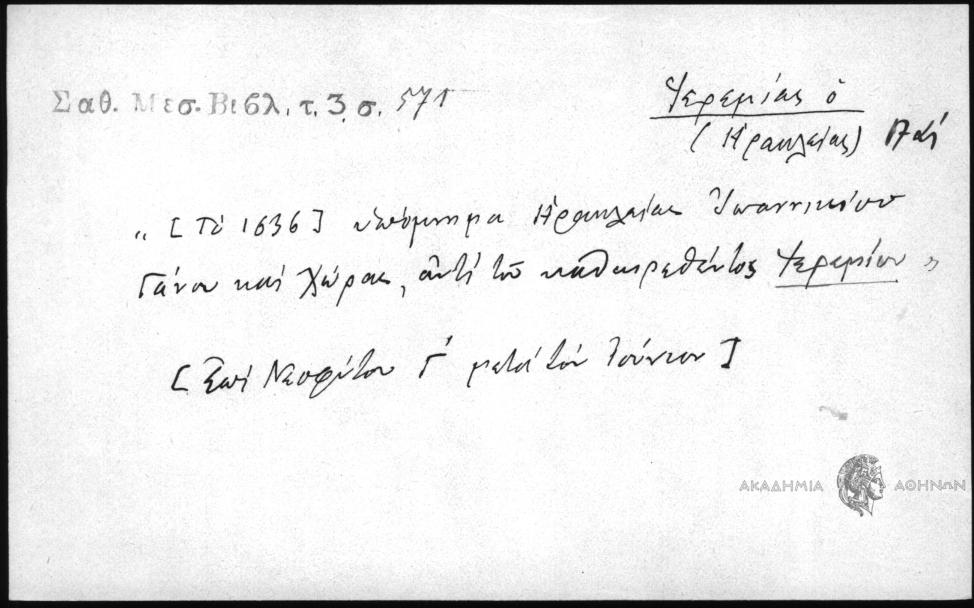 Σαθ. Μεσ. Βιβλ. τ. 3 σ. 571
Ἱερεμίας ὁ
(Ἡρακλείας)
„ [Τῷ 1636] ὑπόμνημα Ἡρακλείας Ἰωαννικίου
Γάνου καὶ Χώρας, ἀντὶ τοῦ καθαιρεθέντος Ἱερεμίου »
[Ἐπὶ Νεοφύτου Γ' μετὰ τὸν Ἰούνιον]
ΑΚΑΔΗΜΙΑ ΑΘΗΝΩΝ